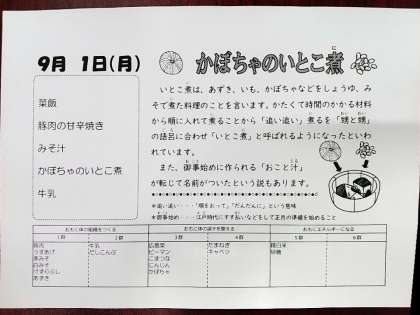 9月 1日(月)
かぼちゃのいとこ煮
菜飯
豚肉の甘辛焼き
みそ汁
かぼちゃのいとこ煮
牛乳
いとこ煮は、あずき、いも、かぼちゃなどをしょうゆ、み
そで煮た料理のことを言います。かたくて時間のかかる材料
から順に入れて煮ることから「追い追い」煮るを「甥と甥」
の語呂に合わせ「いとこ煮」と呼ばれるようになったといわ
れています。
また、御事始めに作られる「おこと汁」
が転じて名前がついたという説もあります。
*追い追い・・・・「順をおって」「だんだんに」という意味
*御事始め・・・江戸時代にすす払いなどをして正月の準備を始めること
おもに体の組織をつくる
おもに体の調子を整える
おもにエネルギーになる
1群 2群 3群 4群 5群 6群
豚肉
うすあげ
赤みそ
白みそ
けずりぶし
あずき
牛乳
だしこんぶ
広島菜
ピーマン
こまつな
にんじん
かぼちゃ
たまねぎ
キャベツ
精白米
砂糖